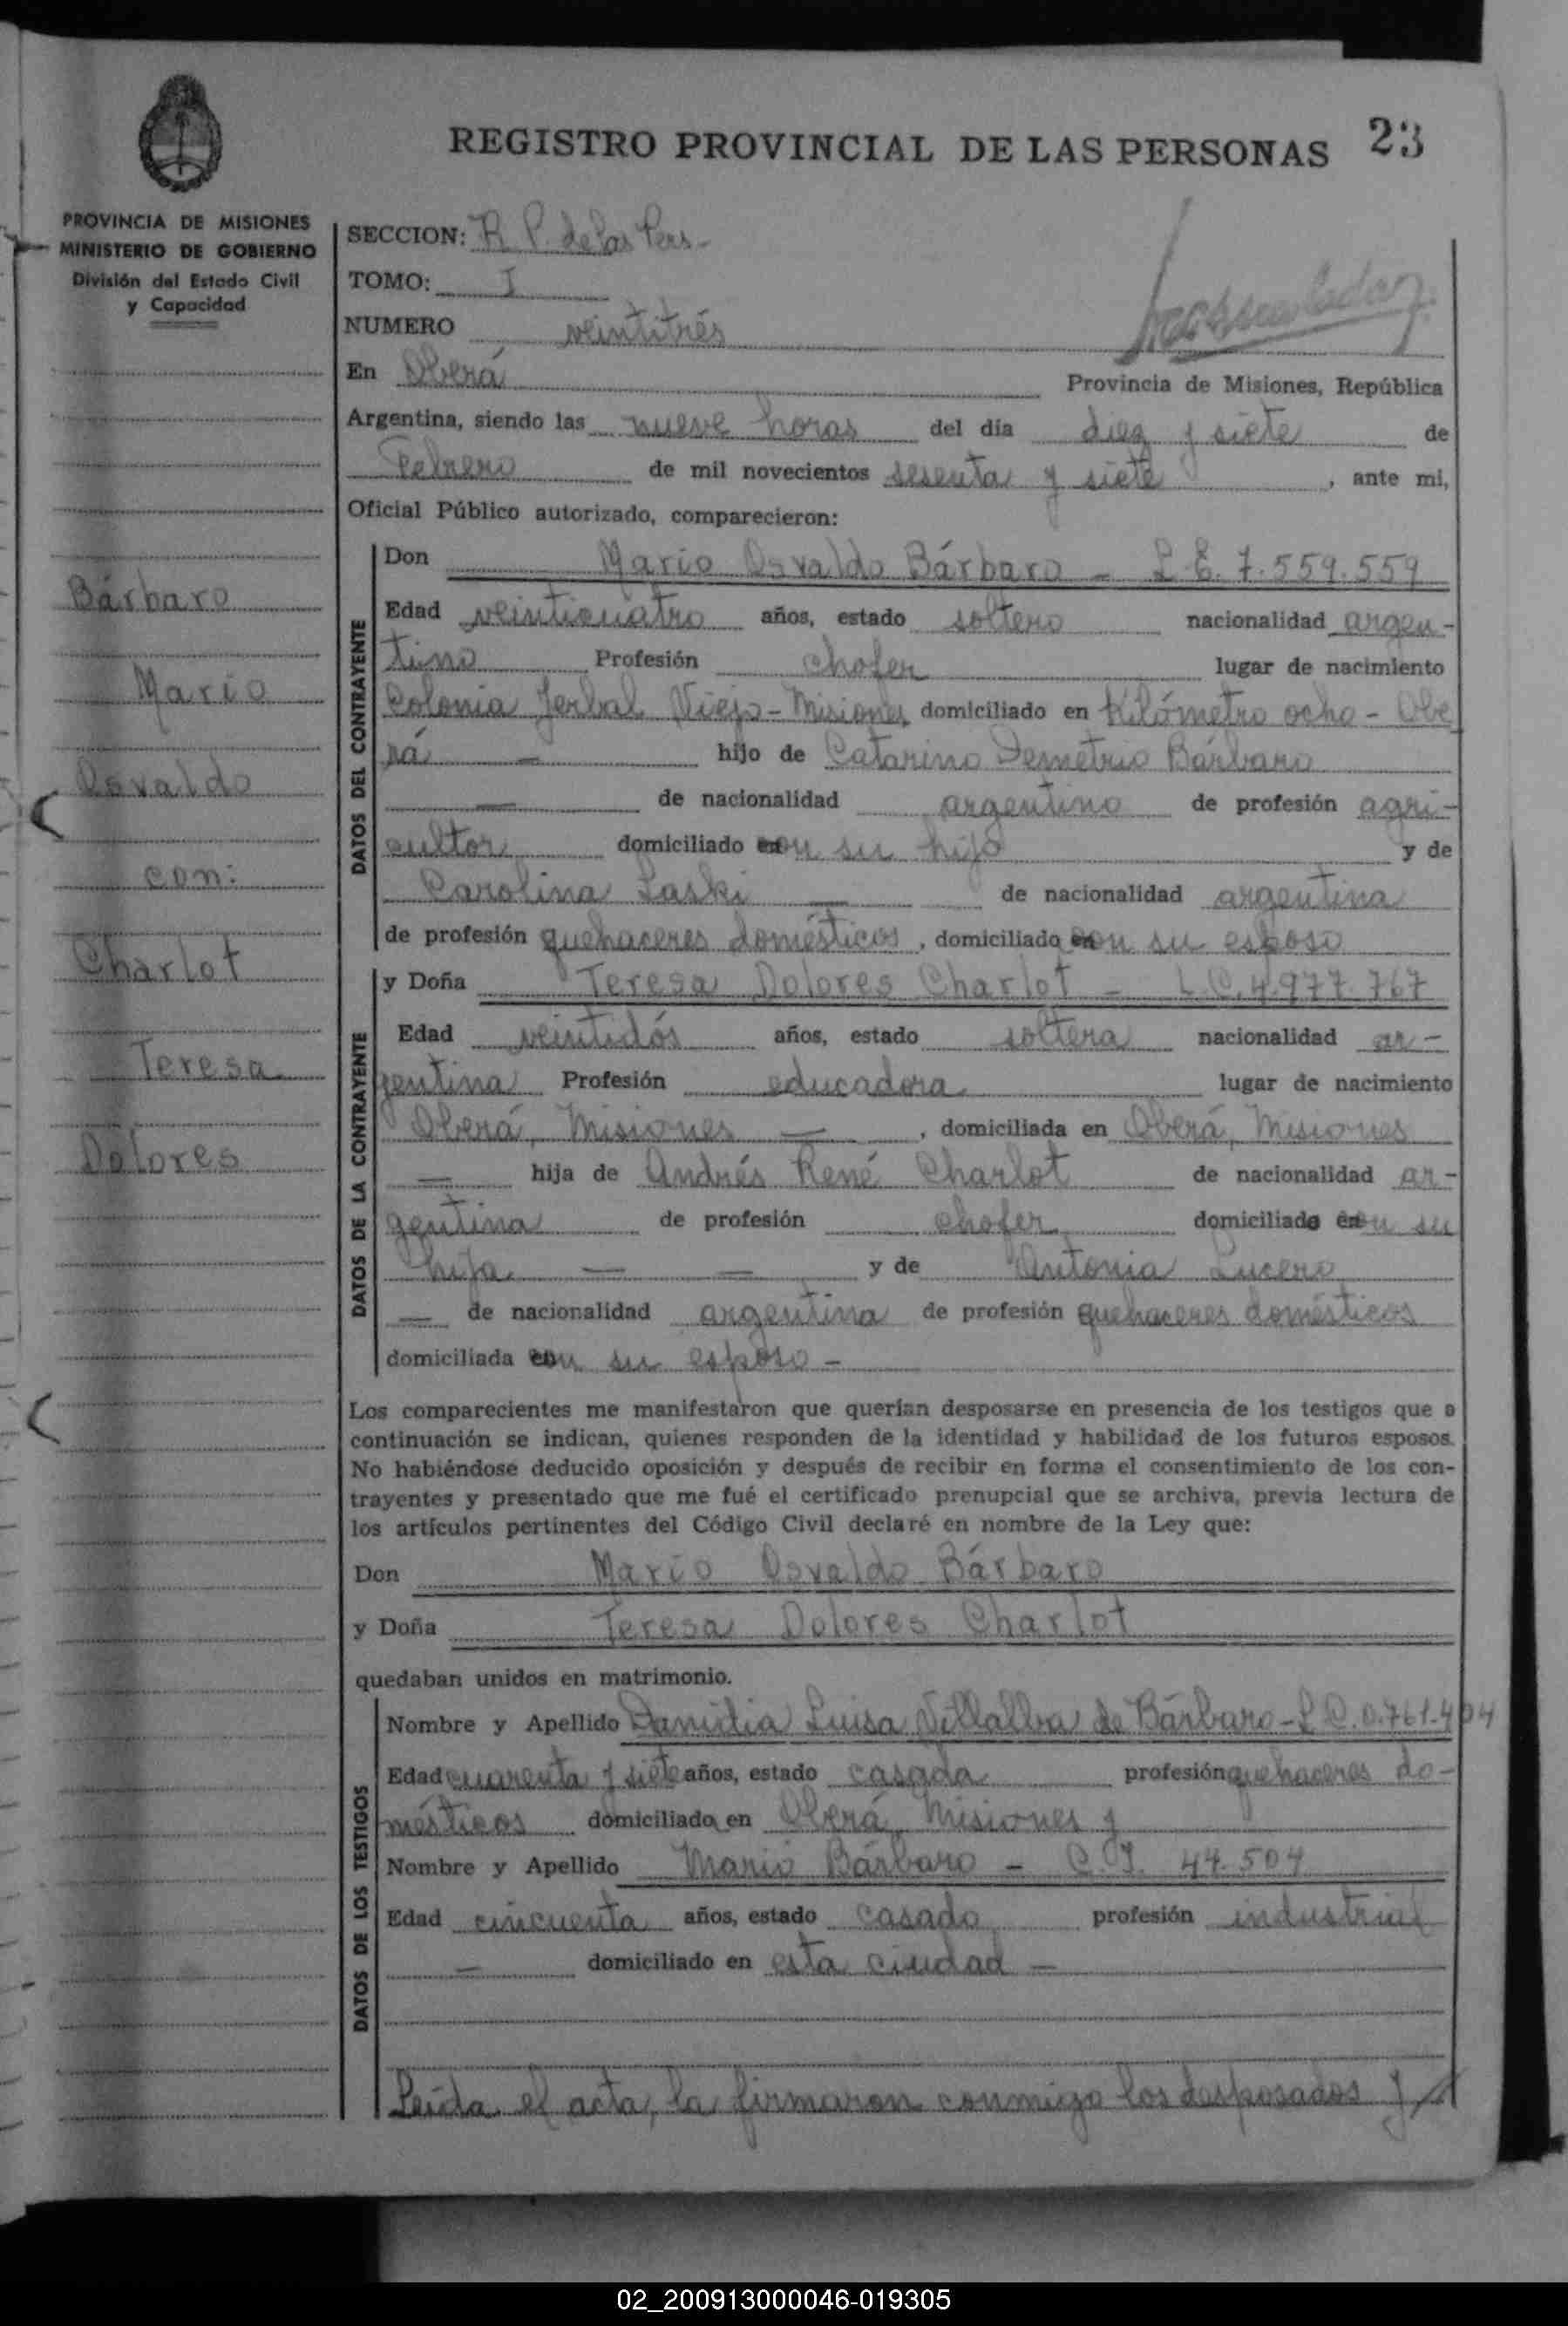 REGISTRO PROVINCIAL DE LAS PERSONAS 23
PROVINCIA DE MISIONES
MINISTERIO DE GOBIERNO
División del Estado Civil
y Capacidad
Bárbaro
Mario
Osvaldo
con:
Charlot
Teresa
Dolores
SECCION: R. P. de las Pers.-
TOMO: I
NUMERO veintitrés
En Oberá Provincia de Misiones, República
Argentina, siendo las nueve horas del día diez y siete de
Febrero de mil novecientos sesenta y siete, ante mi,
Oficial Público autorizado, comparecieron:
DATOS DEL CONTRAYENTE
Don Mario Osvaldo Bárbaro - L.E. 7.559.559
Edad veinticuatro años, estado soltero nacionalidad argen-
tino Profesión chofer lugar de nacimiento
Colonia Yerbal Viejo - Misiones domiciliado en Kilómetro ocho - Obe
rá — hijo de Catarino Demetrio Bárbaro
— de nacionalidad argentino de profesión agri-
cultor domiciliado con su hijo y de
Carolina Laski — de nacionalidad argentina
de profesión quehaceres domésticos, domiciliado con su esposo
DATOS DE LA CONTRAYENTE
y Doña Teresa Dolores Charlot - L.C. 4.977.767
Edad veintidós años, estado soltera nacionalidad ar-
gentina Profesión educadora lugar de nacimiento
Oberá, Misiones —, domiciliada en Oberá, Misiones
— hija de Andrés René Charlot de nacionalidad ar-
gentina de profesión chofer domiciliado con su
hija — — y de Antonia Lucero
— de nacionalidad argentina de profesión quehaceres domésticos
domiciliada con su esposo -
Los comparecientes me manifestaron que querían desposarse en presencia de los testigos que a
continuación se indican, quienes responden de la identidad y habilidad de los futuros esposos.
No habiéndose deducido oposición y después de recibir en forma el consentimiento de los con-
trayentes y presentado que me fué el certificado prenupcial que se archiva, previa lectura de
los artículos pertinentes del Código Civil declaré en nombre de la Ley que:
Don Mario Osvaldo Bárbaro
y Doña Teresa Dolores Charlot
quedaban unidos en matrimonio.
DATOS DE LOS TESTIGOS
Nombre y Apellido Luisa Villalba de Bárbaro - L.C. 0.761.404
Edad cuarenta y siete años, estado casada profesión quehaceres do-
mésticos domiciliada en Oberá, Misiones y
Nombre y Apellido Mario Bárbaro - C.I. 44.504
Edad cincuenta años, estado casado profesión industrial
— domiciliado en esta ciudad —
Leída el acta, la firmaron conmigo los desposados y
02_200913000046-019305